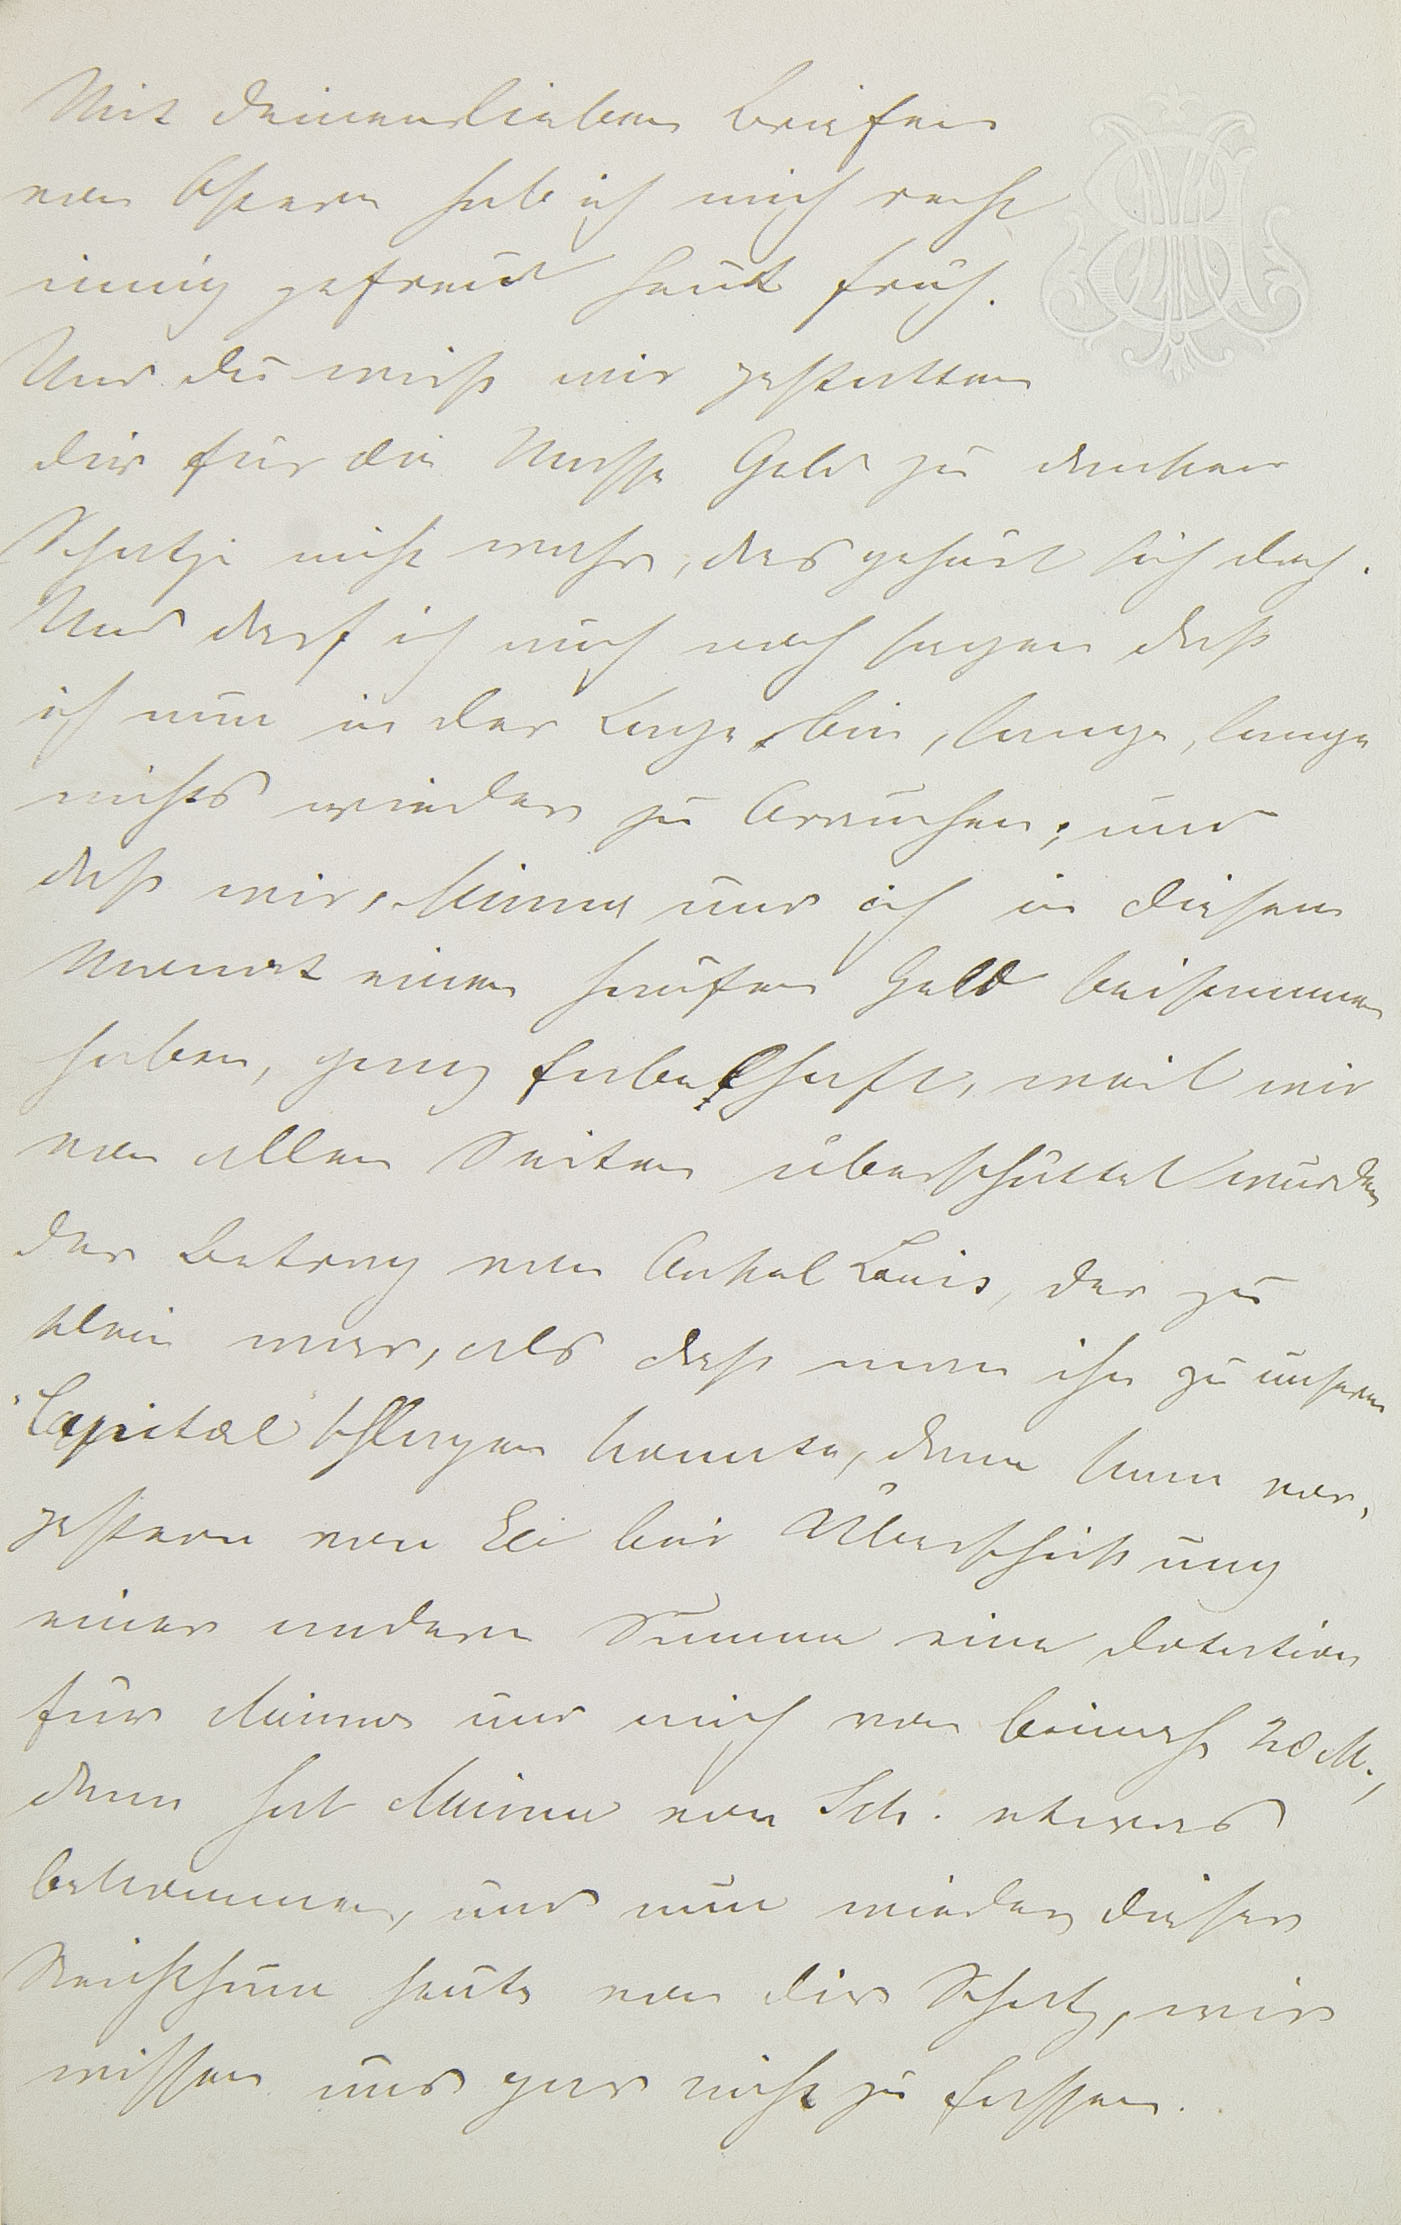 Mit deinen lieben Briefen
von Ostern hab ich mich recht
innig gefreut heut früh.
Und du mußt mir gestatten
dir für die Masse Geld zu danken
Schatzi nicht wahr, das gehört sich doch.
Und darf ich auch noch sagen daß
ich nun in der Lage bin, lange, lange
nichts wieder zu brauchen, und
daß wir, Minna und ich in diesem
Monat einen haufen Geld beisammen
haben, ganz fabelhaft, weil wir
von allen Seiten überschüttet wurden
der Betrag von Onkel Louis, der zu
klein war, als daß man ihn zu unserm
"Capital" schlagen konnte, dann kam vor,
gestern von Eli bei Überschickung
einer andern Summe eine Dotation
für Minna und mich von beinah 20 M.,
dann hat Minna von Sch. etwas
bekommen, und nun wieder dieser
Reichthum heute von dir Schatz, wir
wissen uns gar nicht zu fassen.